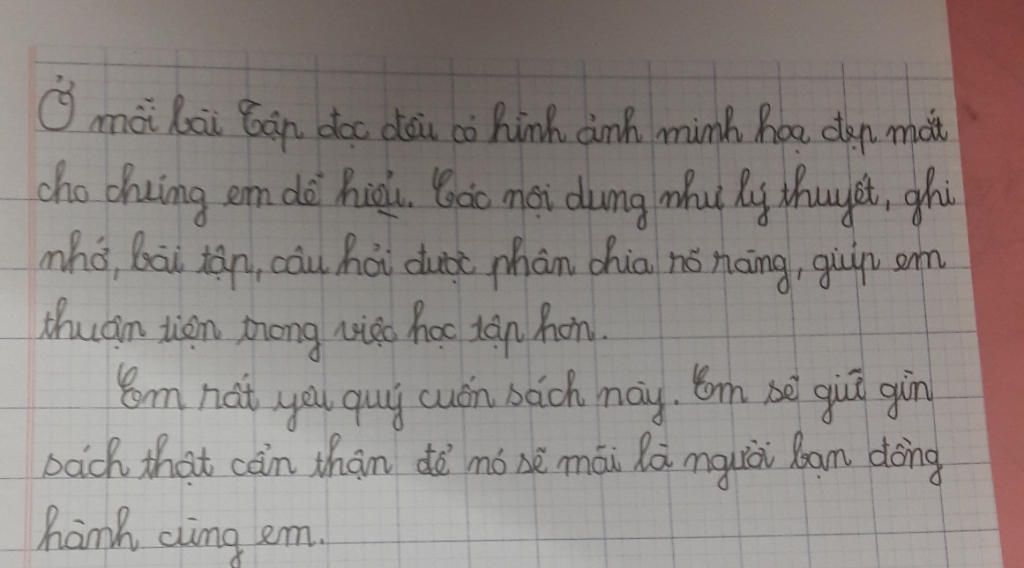 Ở mỗi bài tập đọc đều có hình ảnh minh hoạ đẹp mắt
cho chúng em dễ hiểu. Các nội dung như lý thuyết, ghi
nhớ, bài tập, câu hỏi được phân chia rõ ràng, giúp em
thuận tiện trong việc học tập hơn.
Em rất yêu quý cuốn sách này. Em sẽ giữ gìn
sách thật cẩn thận để nó sẽ mãi là người bạn đồng
hành cùng em.